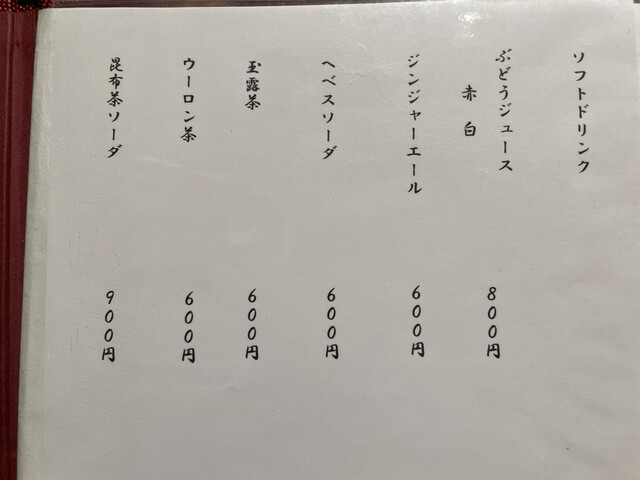 ソフトドリンク
ぶどうジュース 800円
赤 白
ジンジャーエール 600円
ヘベスソーダ 600円
玉露茶 600円
ウーロン茶 600円
昆布茶ソーダ 900円